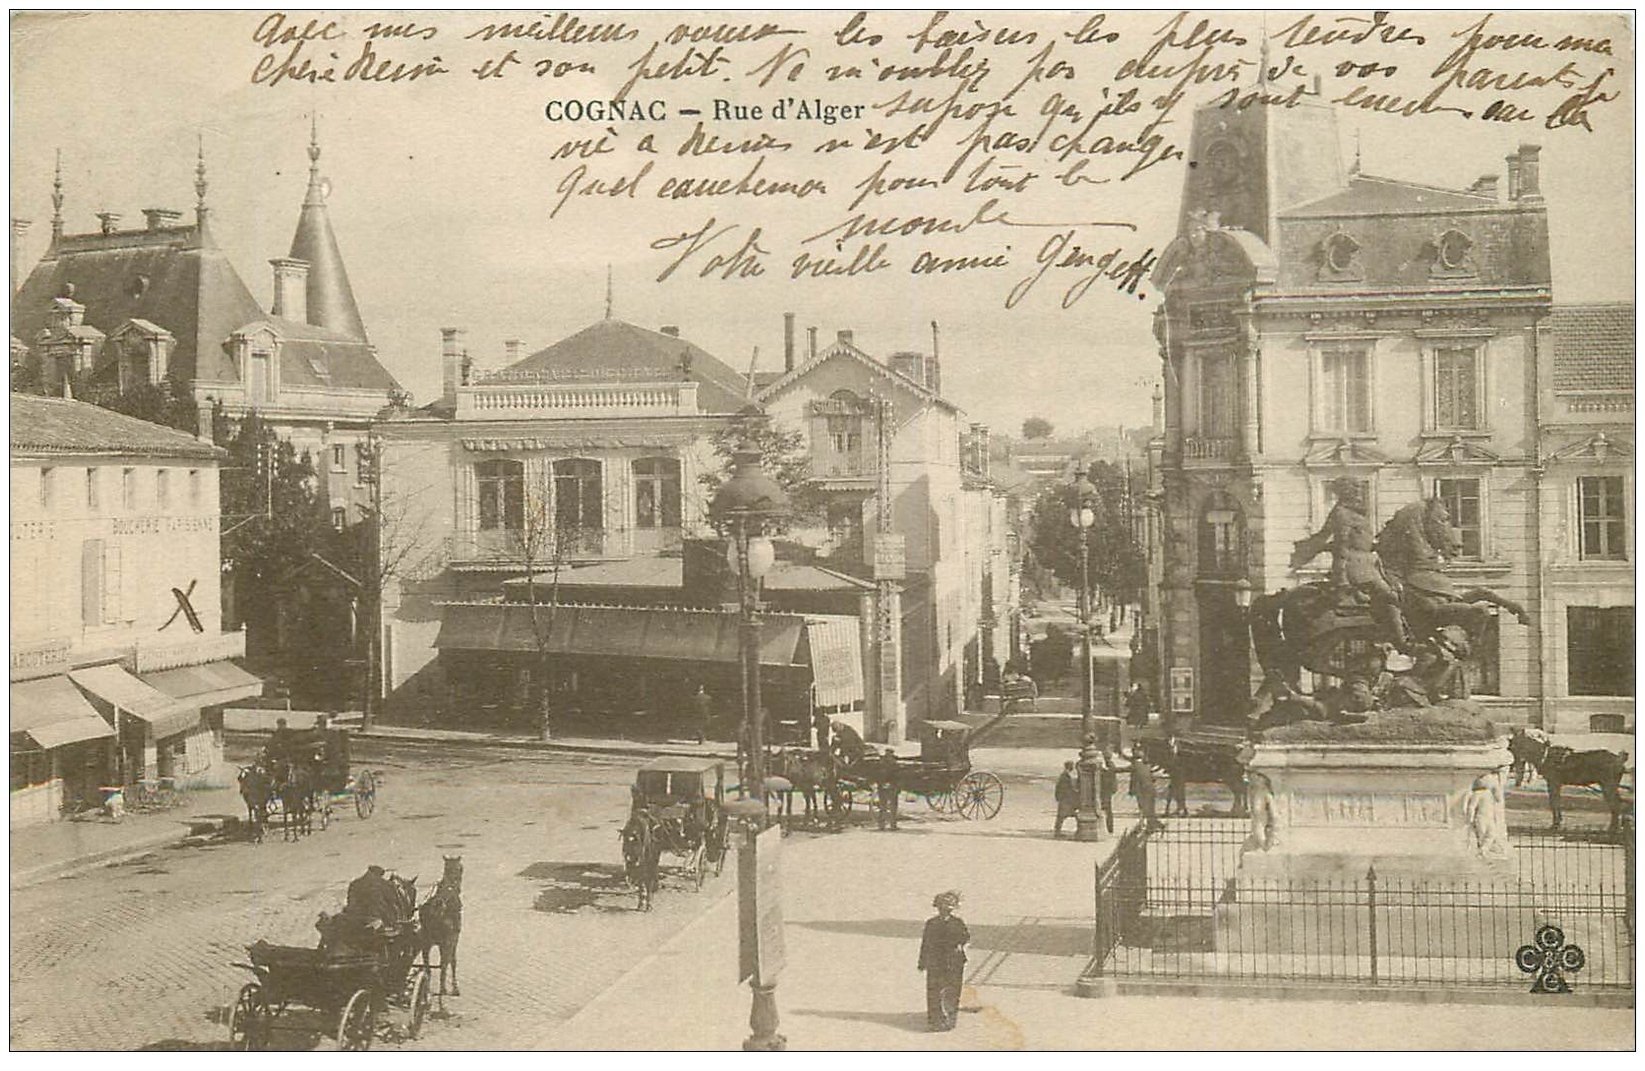 Avec mes meilleurs voeux les baisers les plus tendres pour ma
chère et son petit. Ne m'oubliez pas auprès de vos parents je
COGNAC — Rue d'Alger
suppose qu'ils y sont encore car la
vie à n'est pas changer.
Quel cauchemar pour tout le
monde
Votre vieille amie
BOUCHERIE PARISIENNE
C C & C C